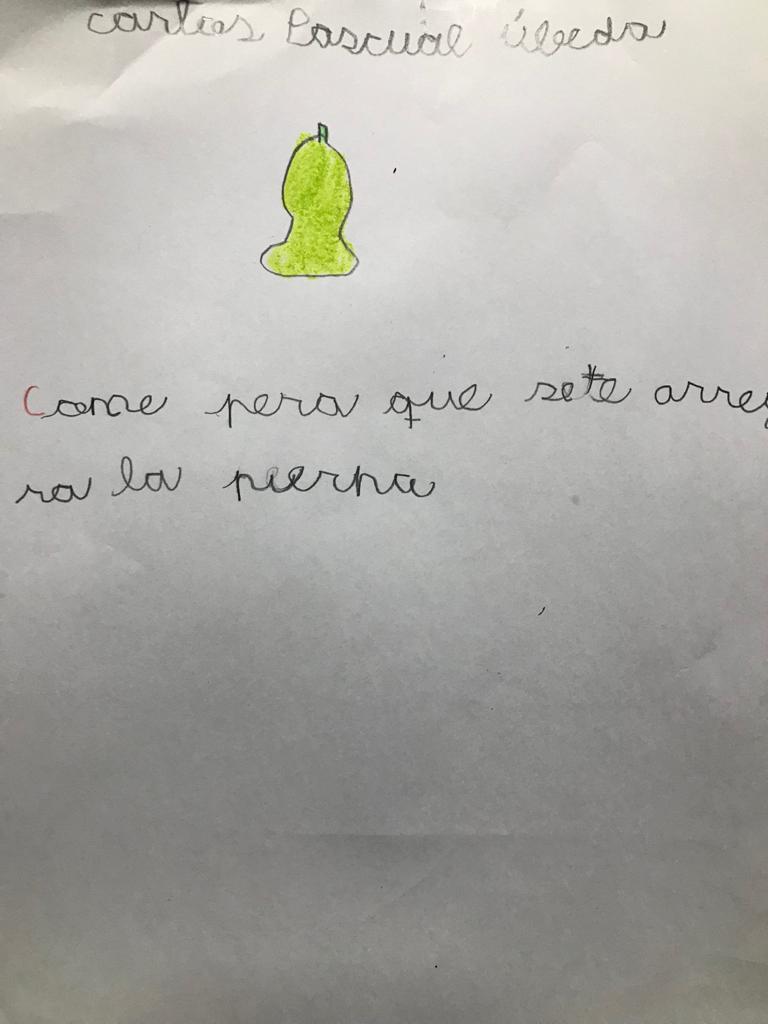 carlos Pascual Úbeda
Come pera que sete arreg
ra la pierna